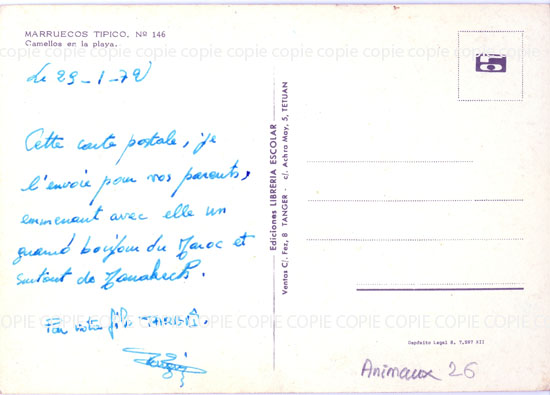 MARRUECOS TIPICO, Nº 146
Camellos en la playa.
COPIE COPIE COPIE COPIE COPIE COPIE COPIE COPIE
Le 29-1-72
Cette carte postale, je
l'envoie pour vos parents,
emmenant avec elle un
grand bonjour du Maroc et
surtout de Marrakech.
Par votre fils
COPIE COPIE COPIE COPIE COPIE COPIE COPIE COPIE
Ediciones LIBRERIA ESCOLAR
Ventas C/. Fez, 8 TANGER - c/. Achra May, 5, TETUAN
Depósito Legal B. 7.597 XII
Animaux 26